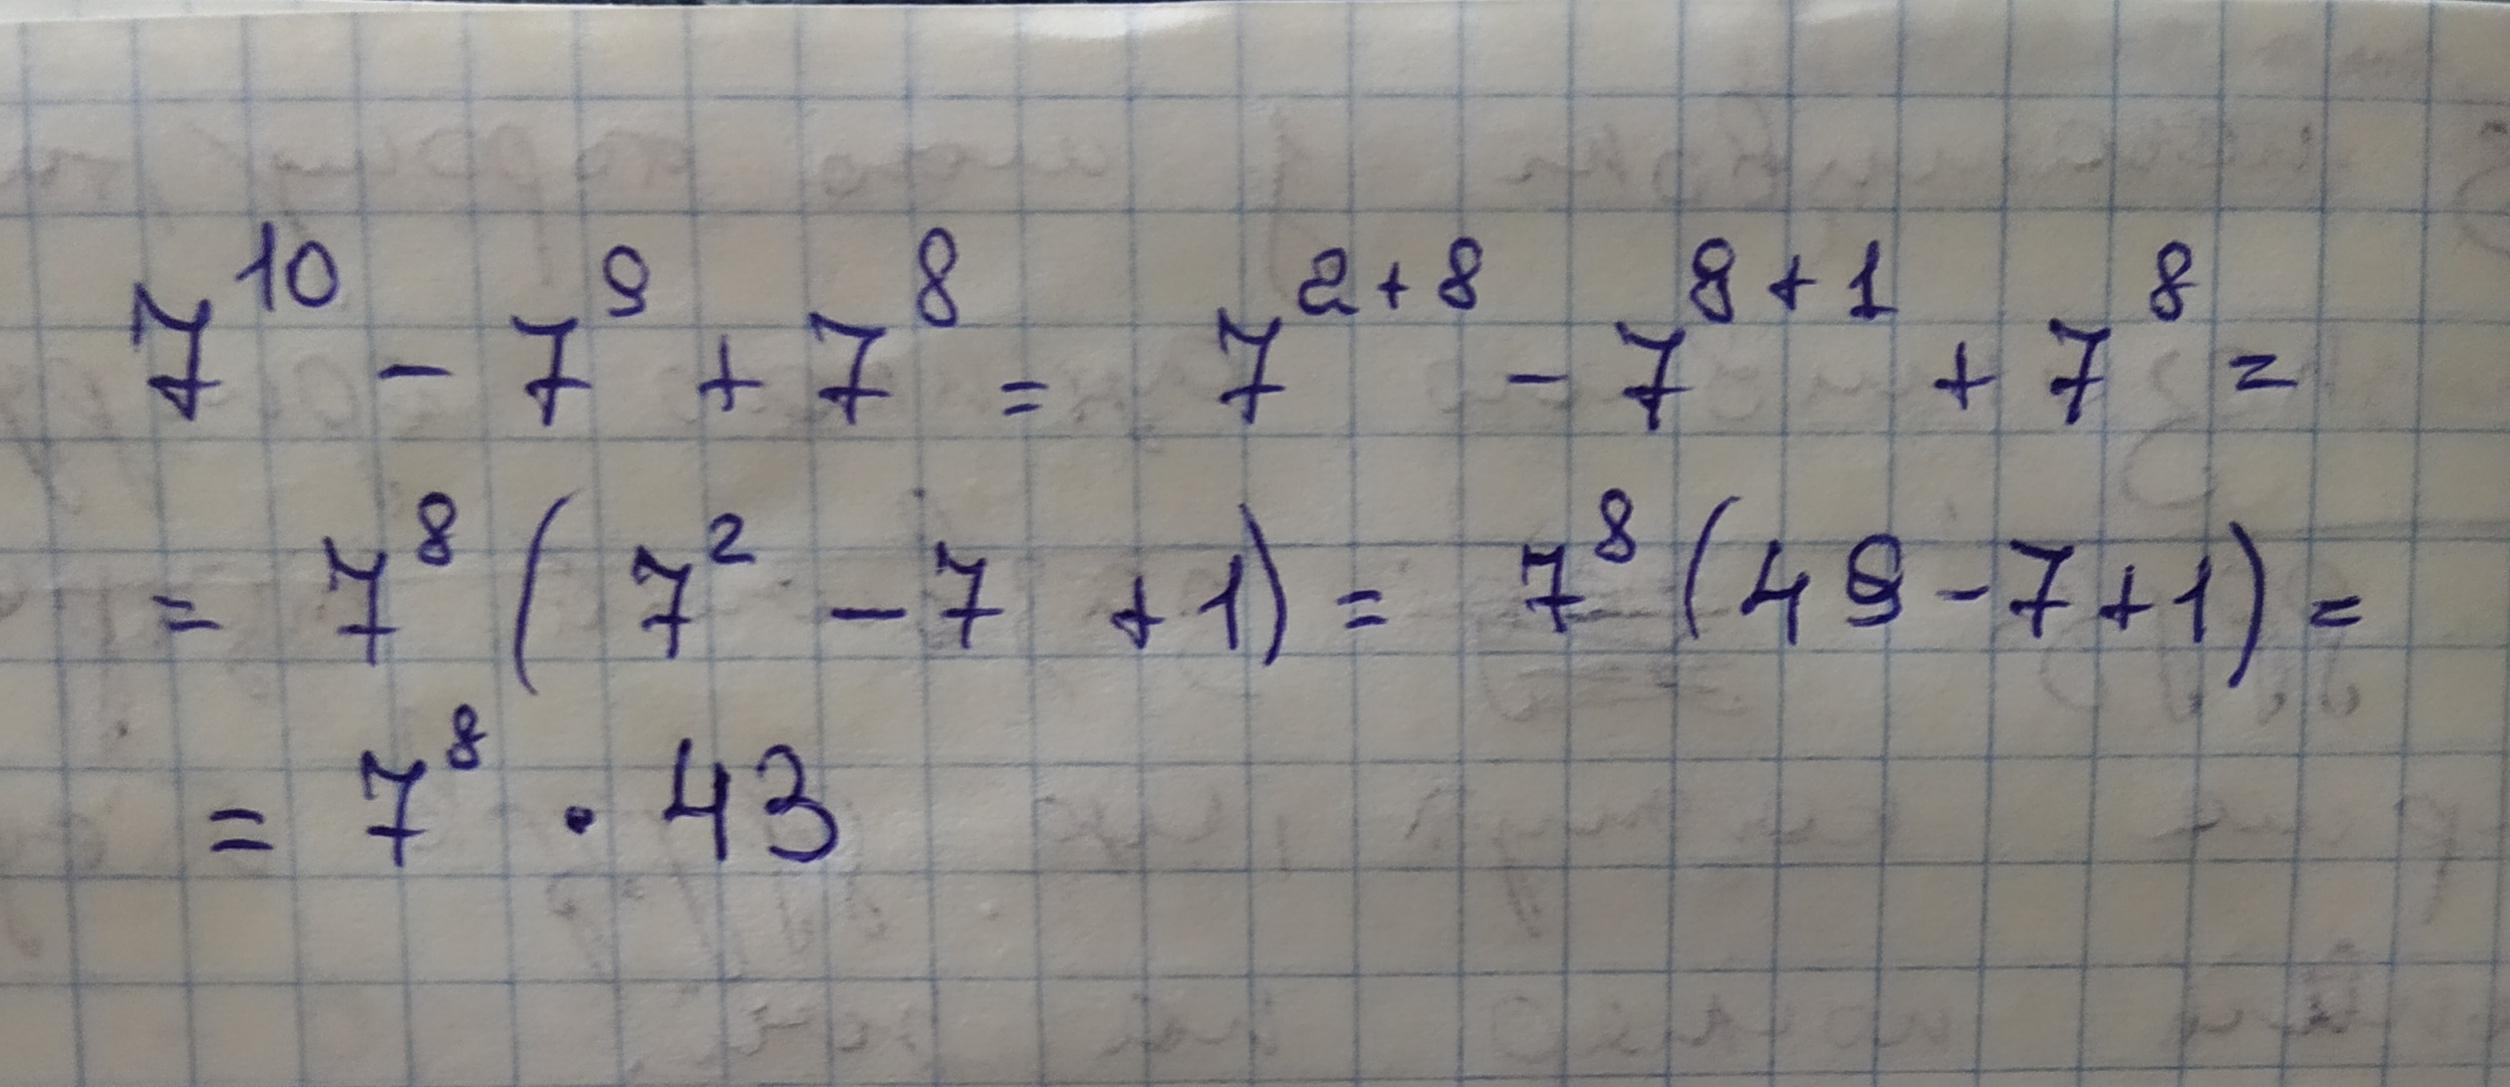 7¹⁰ - 7⁹ + 7⁸ = 7²⁺⁸ - 7⁸⁺¹ + 7⁸ =
= 7⁸ ( 7² - 7 + 1 ) = 7⁸ ( 49 - 7 + 1 ) =
= 7⁸ · 43